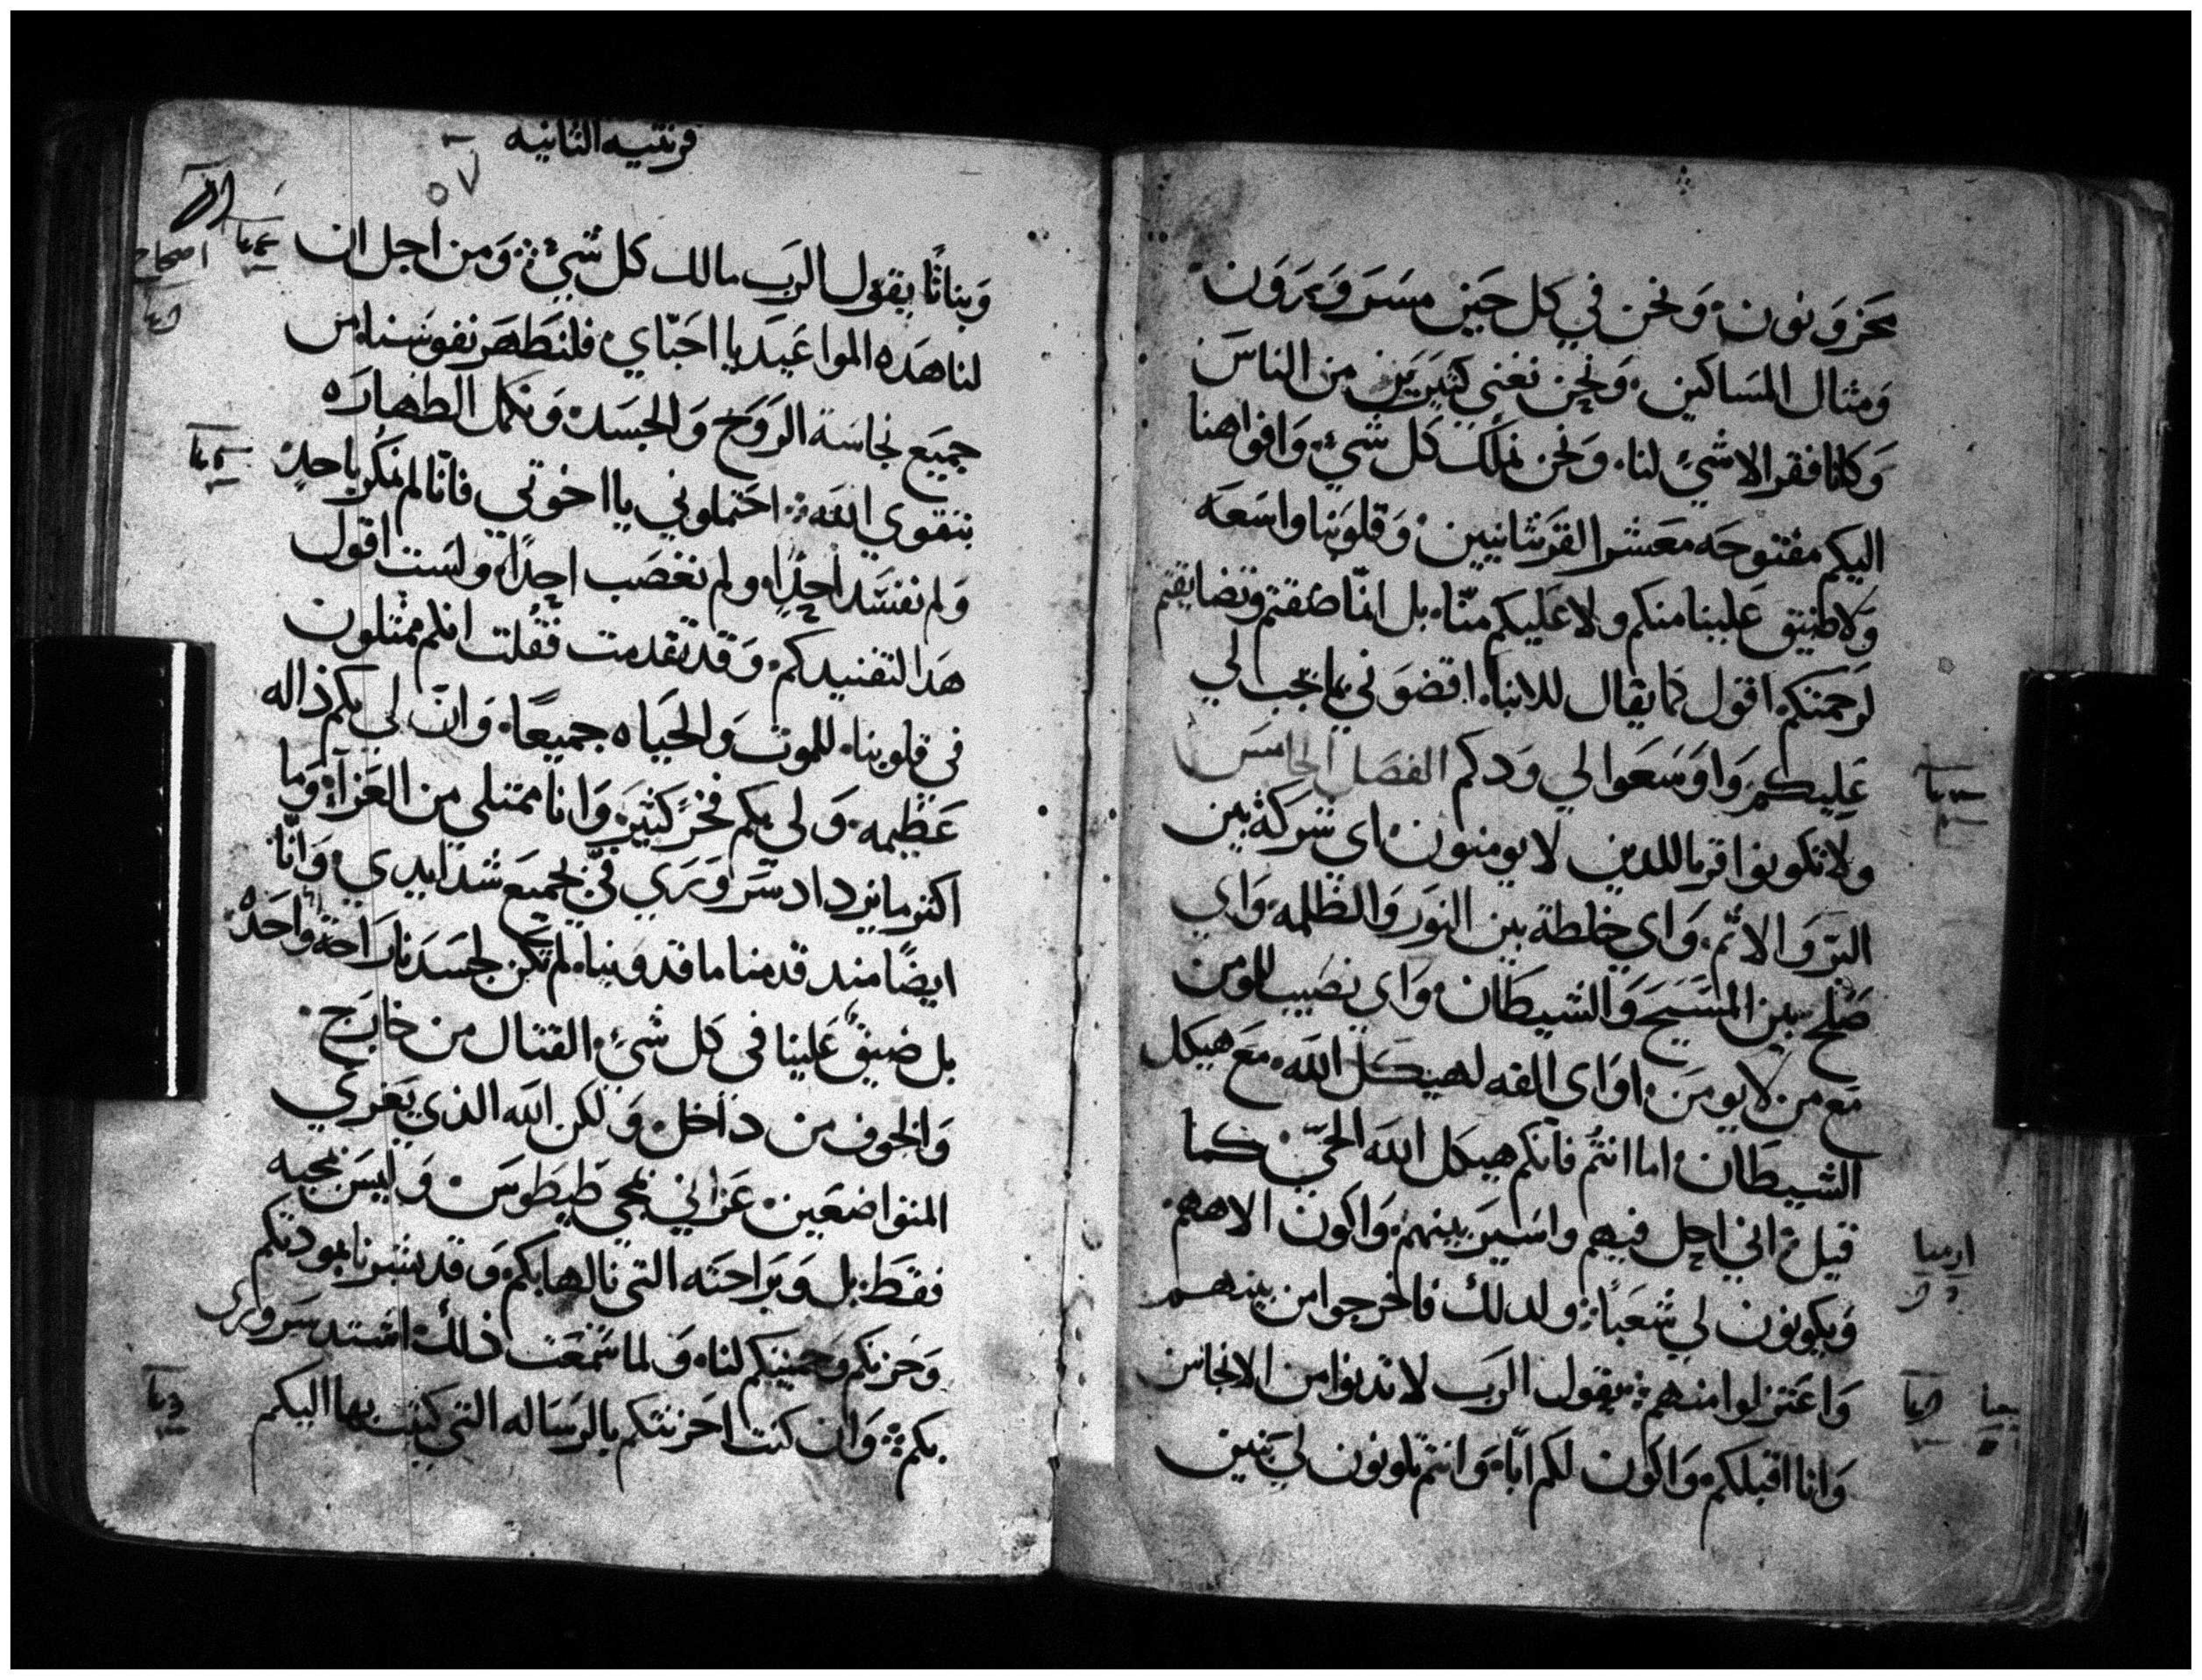 محزونون ونحن في كل حين مسرورون
ومثال المساكين ونحن نغني كثيرين من الناس
وكانا فقرا لا شئ لنا ونحن نملك كل شئ وافواهنا
اليكم مفتوحه معشر القرنثانيين وقلوبنا واسعه
ولا ضيق علينا منكم ولا عليكم منّا بل انّما ضقتم وتضايقتم
لرحمتكم اقول كما يقال للابنا اقضوني بما يجب لي
عليكم واوسعوا لي ودكم الفصل الخامس
ولا تكونوا قرنا للدين لا يومنون اي شركة بين
البر والاثم واي خلطة بين النور والظلمه واي
صلح بين المسيح والشيطان واي نصيب للمومن
مع من لا يومن او اى الفه لهيكل الله مع هيكل
الشيطان اما انتم فانكم هيكل الله الحيّ كما
قيل اني احل فيهم واسير بينهم واكون الاههم
ويكونون لي شعبًا ولدلك فاخرجوا من بينهم
واعتزلوا منهم يقول الرب لا تدنوا من الانجاس
وانا اقبلكم واكون لكم ابًا وانتم تكونون لي بنين
ارميا
قرنتيه الثانيه
٥٧
وبناتًا يقول الرب مالك كل شئ ومن اجل ان
اصحاح
لنا هده المواعيد يا احبّاي فلنطهر نفوسنا من
جميع نجاسة الروح والجسد ونكمل الطهاره
بتقوي الله احتملوني يا اخوتي فانّا لم نمكر باحد
ولم نفسد احدًا ولم نغصب احدًا ولست اقول
هدا لتفنيدكم وقد تقدمت فقلت انكم ممثلون
في قلوبنا للموت والحياه جميعًا وانّ لي بكم ذاله
عظيمه ولى بكم فخر كثير وانا ممتلي من العزآء وما
اكثر ما يزداد سروري فيّ بجميع شدايدي وانّا
ايضًا مند قدمنا ماقدونيا لم تكن لجسدنا راحة واحده
بل ضيق علينا في كل شئ القتال من خارج
والخوف من داخل ولكن الله الذي يعزي
المتواضعين عزاني بمجي طيطوس وليس بمجيه
فقط بل وبراحته التي نالها بكم وقد بشرنا بمودتكم
وحزنكم وحنينكم لنا ولما سمعت ذلك اشتد سرورى
بكم وان كنت احزنتكم بالرساله التي كتبت بها اليكم